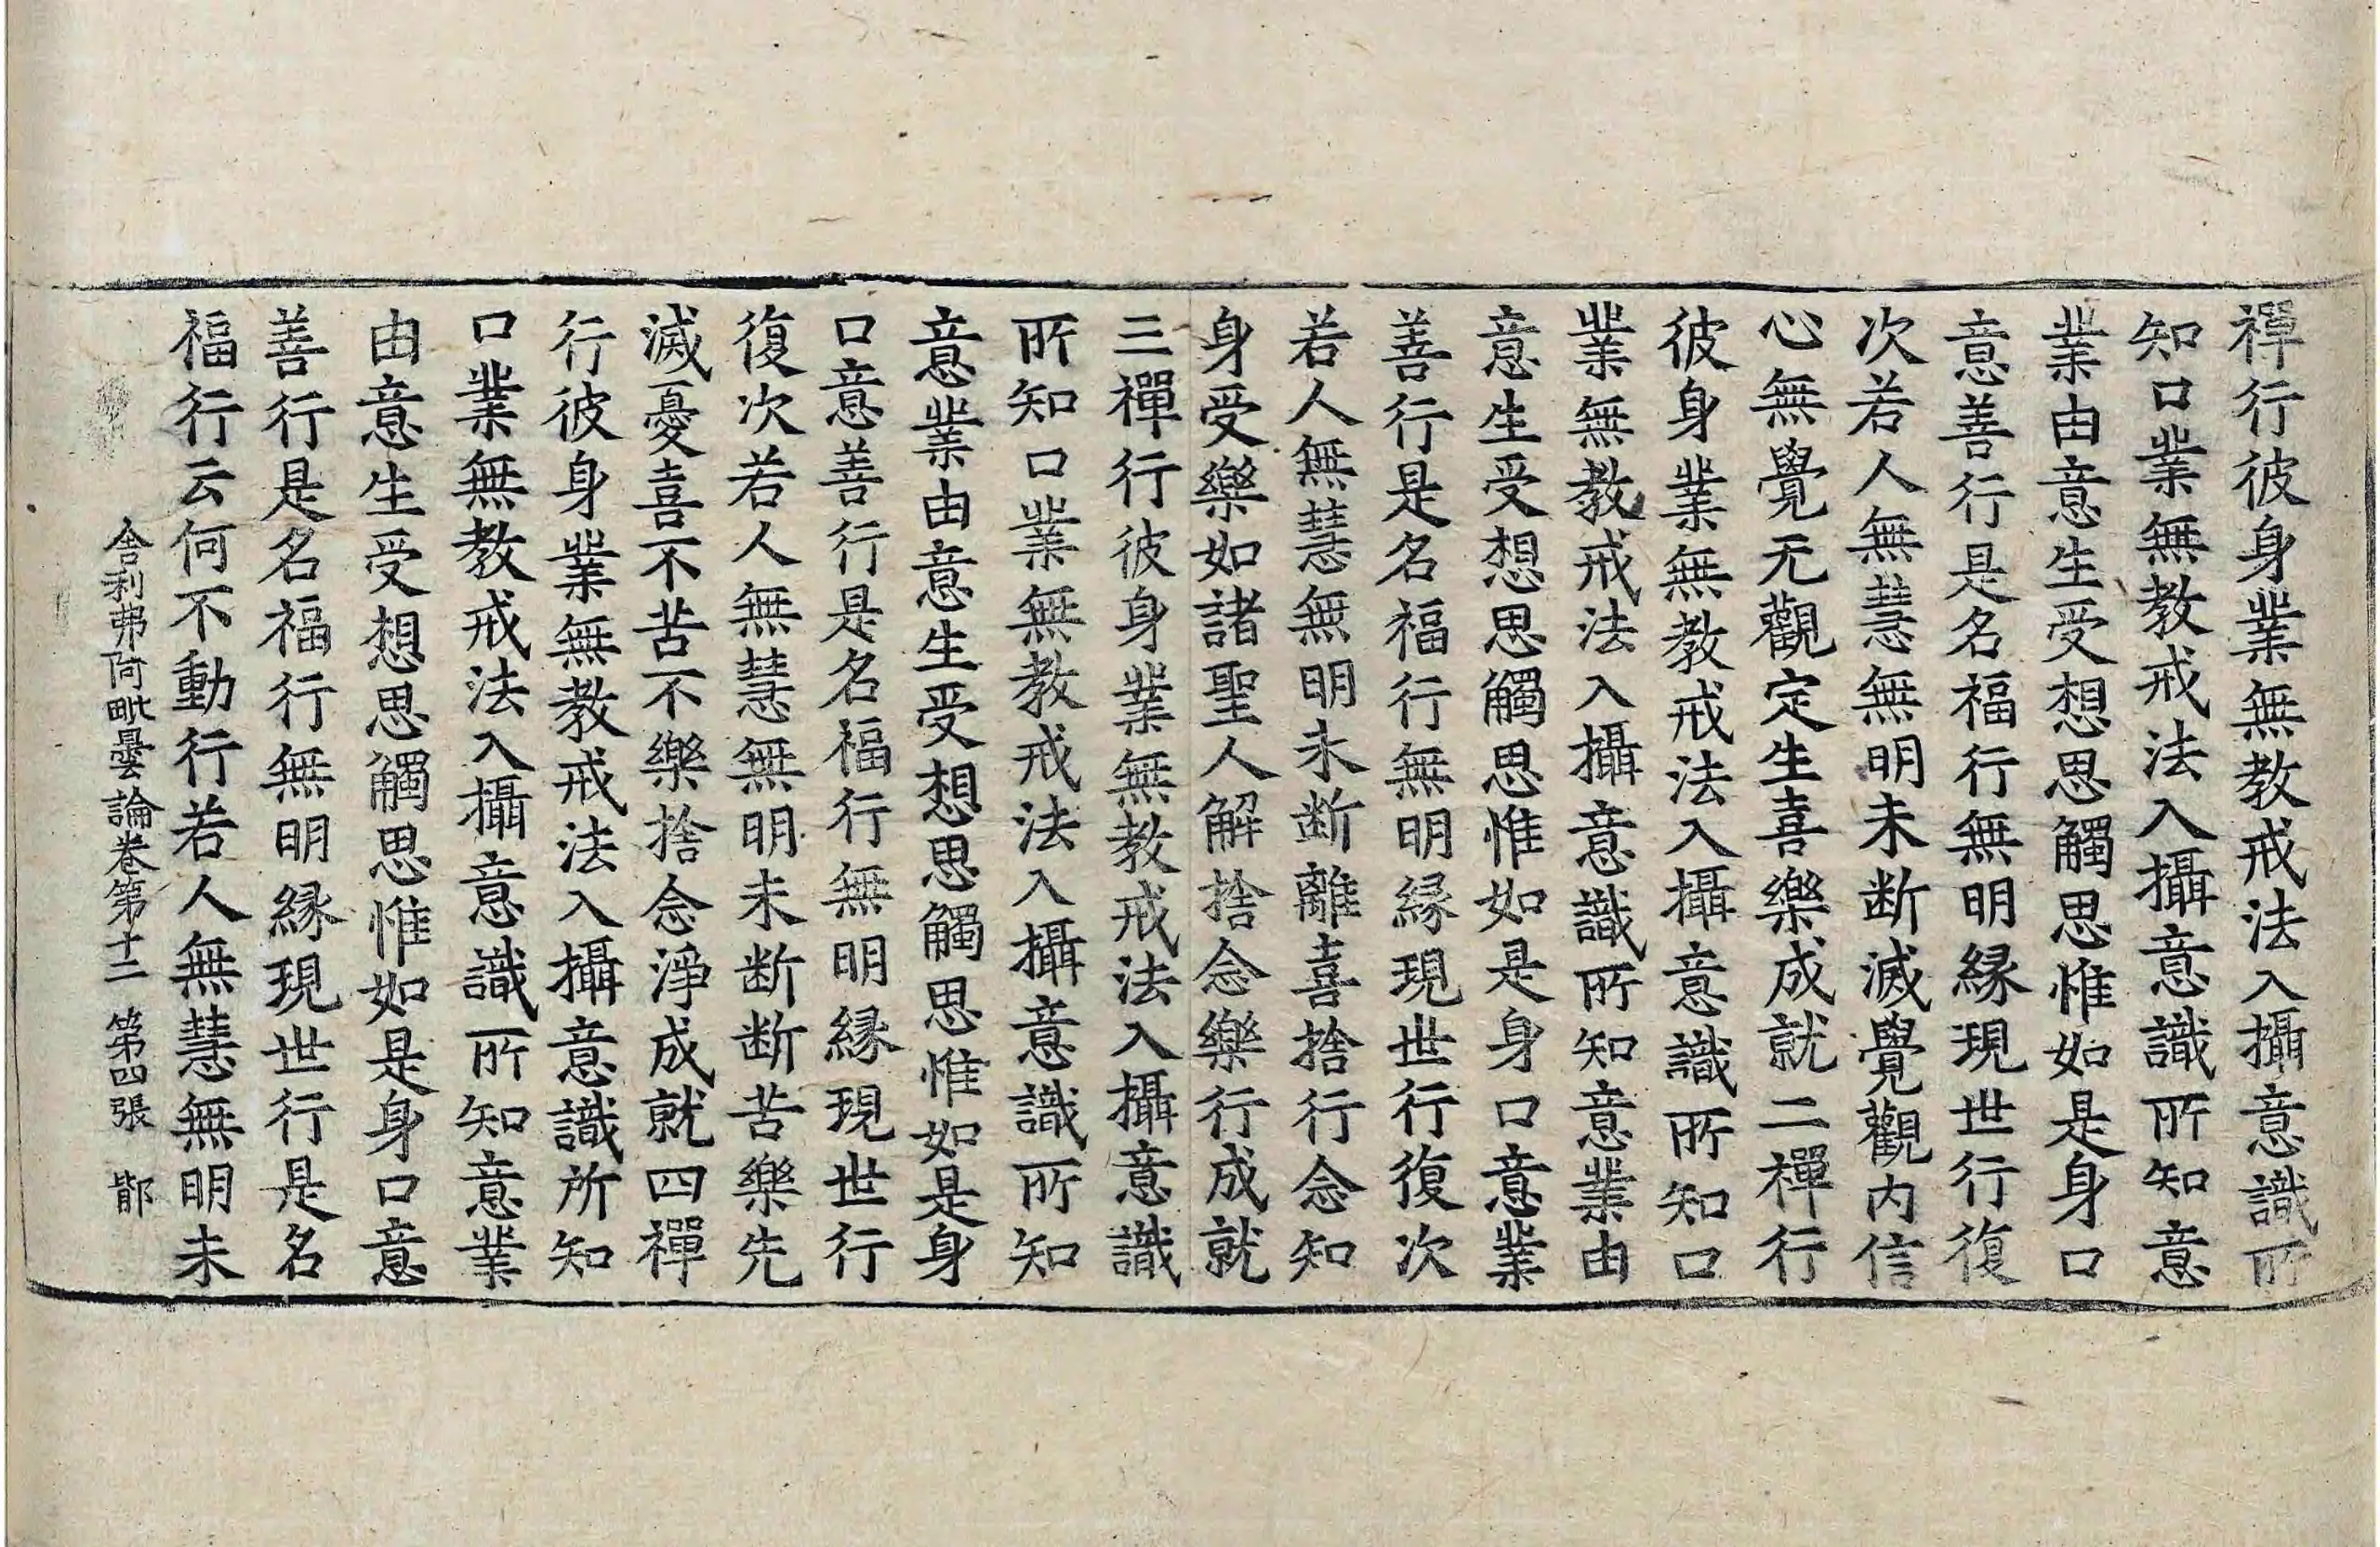 禪行彼身業無教戒法入攝意識所
知口業無教戒法入攝意識所知意
業由意生受想思觸思惟如是身口
意善行是名福行無明緣現世行復
次若人無慧無明未断滅覺觀内信
心無覺无觀定生喜樂成就二禪行
彼身業無教戒法入攝意識所知口
業無教戒法入攝意識所知意業由
意生受想思觸思惟如是身口意業
善行是名福行無明緣現世行復次
若人無慧無明未断離喜捨行念知
身受樂如諸聖人解捨念樂行成就
三禪行彼身業無教戒法入攝意識
所知口業無教戒法入攝意識所知
意業由意生受想思觸思惟如是身
口意善行是名福行無明緣現世行
復次若人無慧無明未断断苦樂先
滅憂喜不苦不樂捨念淨成就四禪
行彼身業無教戒法入攝意識所知
口業無教戒法入攝意識所知意業
由意生受想思觸思惟如是身口意
善行是名福行無明緣現世行是名
福行云何不動行若人無慧無明未
舍利弗阿毗曇論卷第十二 第四張